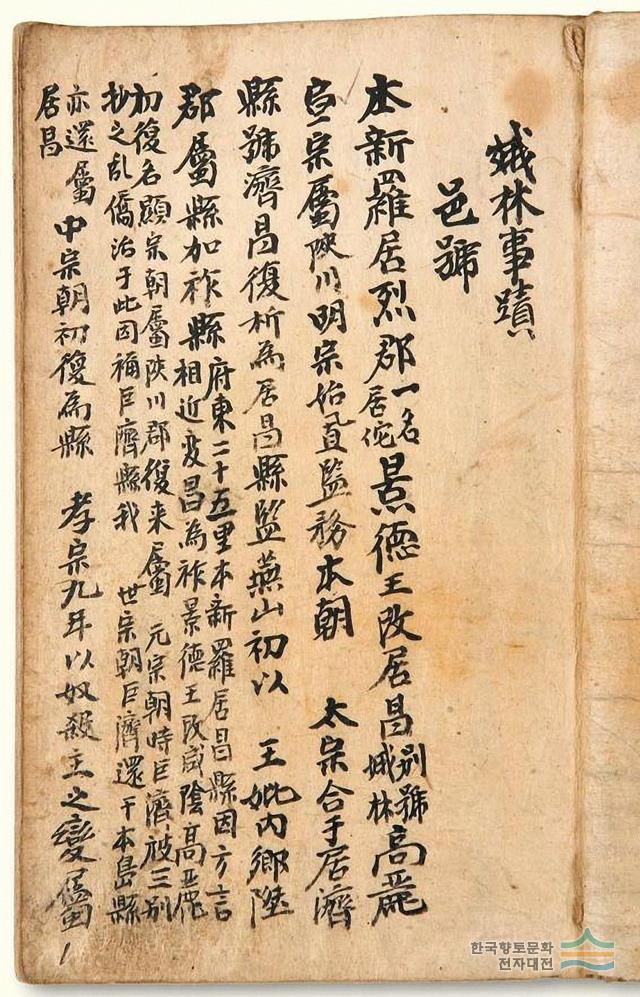 娥林事蹟
邑號
本新羅居烈郡一名居佗景德王改居昌別號娥林高麗
宗屬陜川明宗始置監務本朝 太宗合于居濟
縣號濟昌復析為居昌縣監燕山初以 王妣內鄉陞
郡屬縣加祚縣府東二十五里本新羅居昌縣因方言
相近变昌為祚景德王改咸陰高麗
初復名顯宗朝屬陜川郡復来屬 元宗朝時巨濟被三別
抄之乱僑治于此因稱巨濟縣我 世宗朝巨濟還于本島縣
亦還屬
居昌
中宗朝初復為縣 孝宗九年以奴殺主之變屬
한국향토문화
전자대전